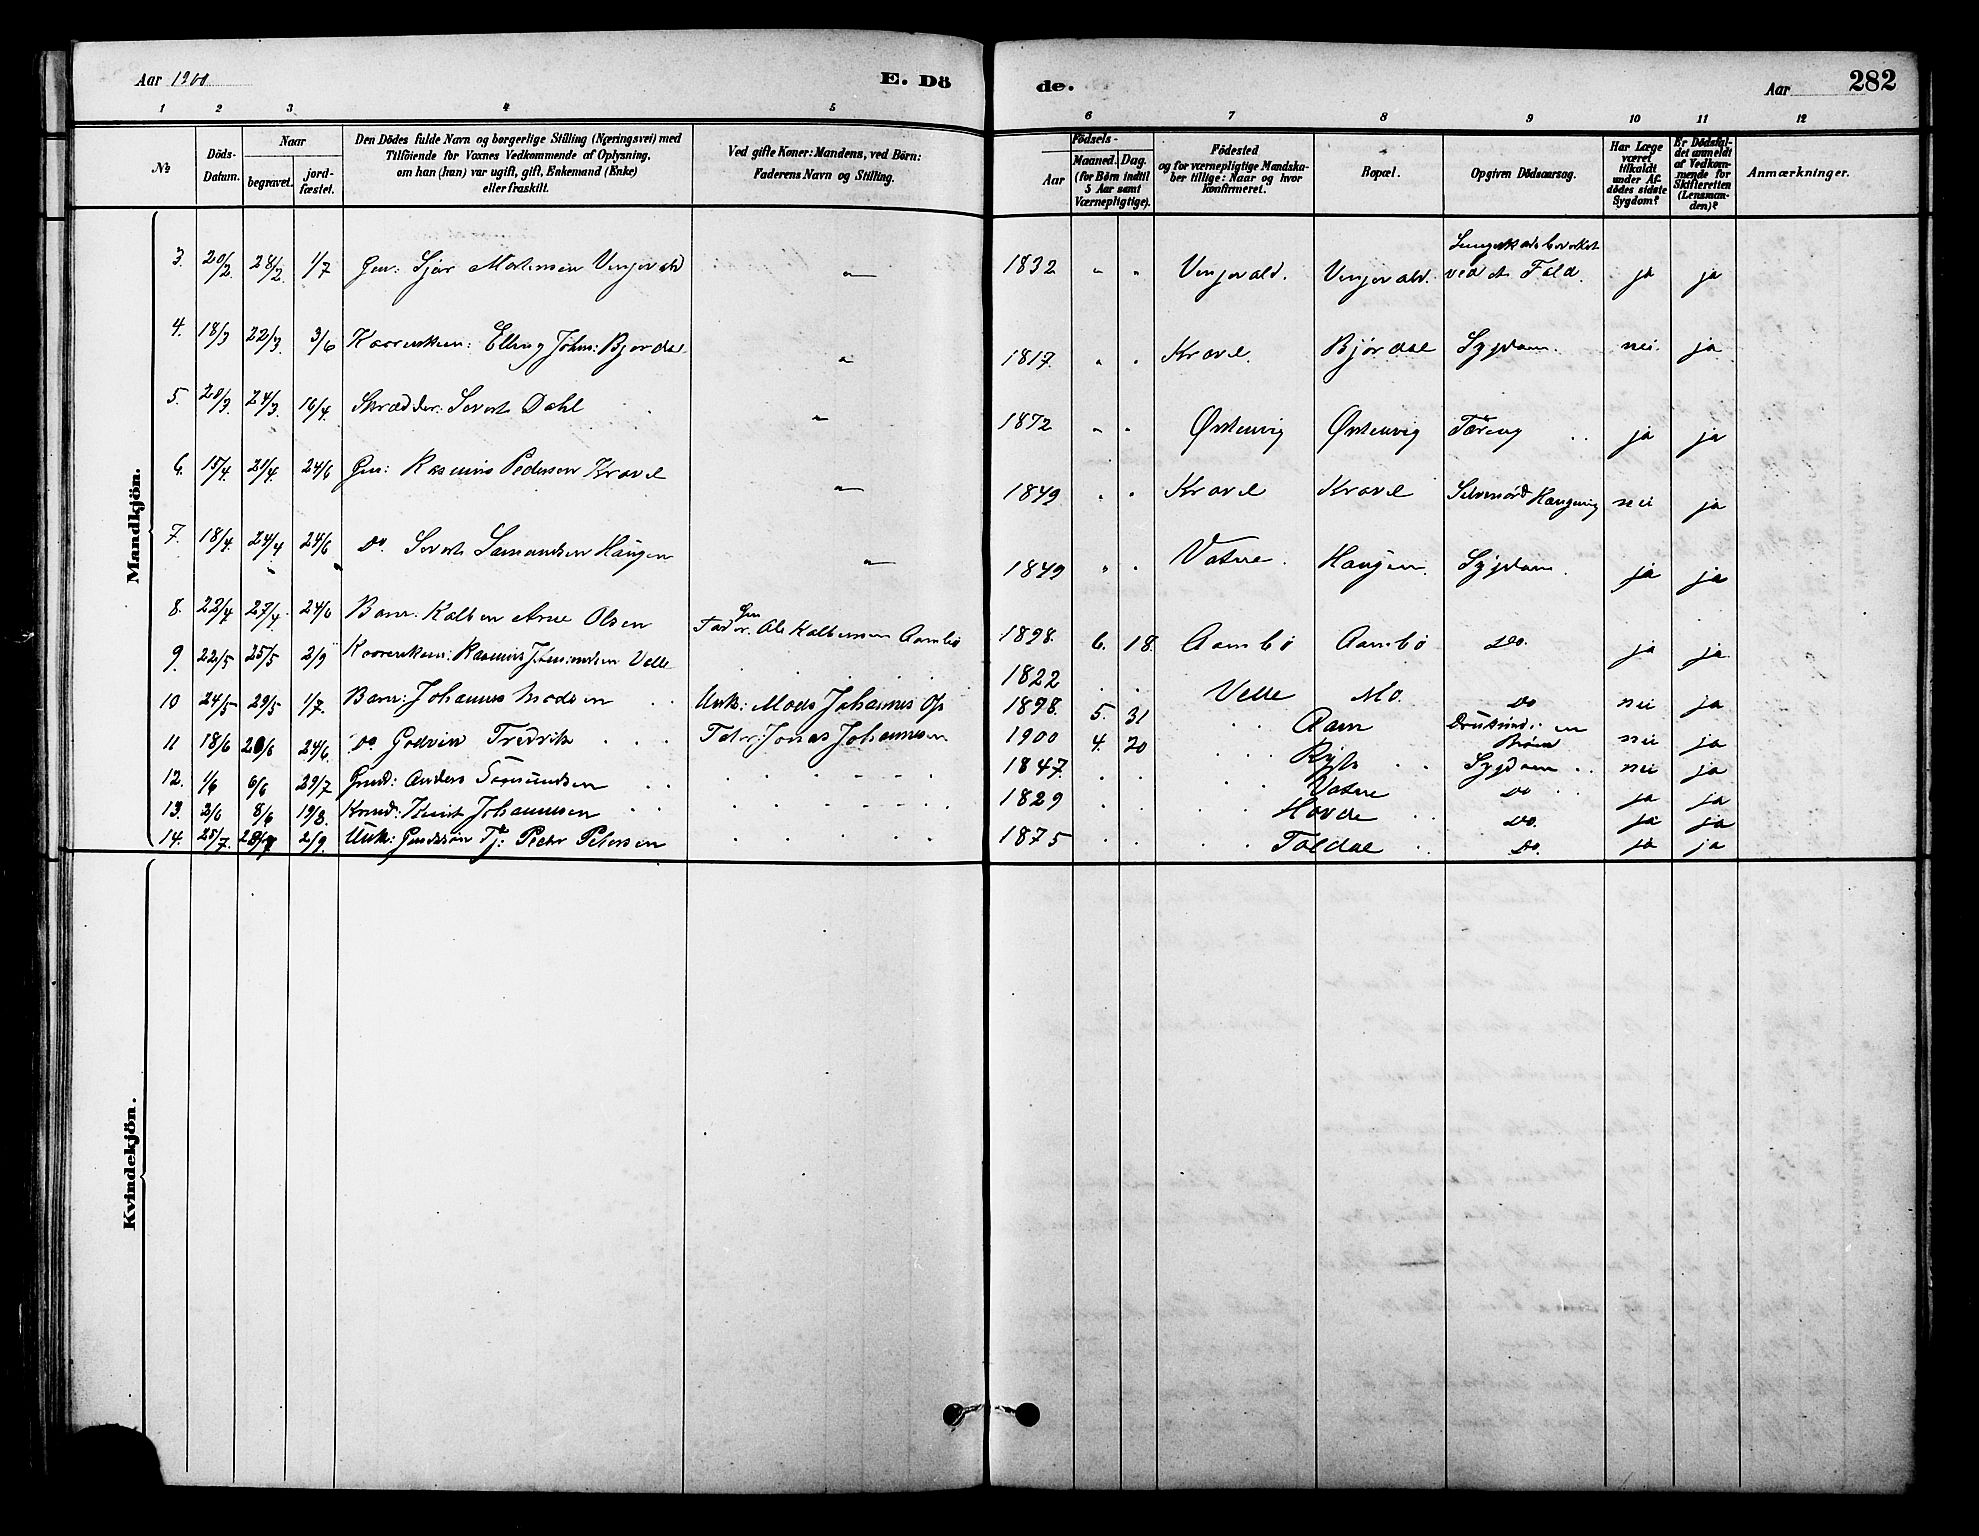 Aar 1900
E. Dö
de.
Aar
282
1 2 3 4 5 6 7 8 9 10 11 12
№
Döds-Datum.
Naar
begravet.
jordfæstet.
Den Dödes fulde Navn og borgerlige Stilling (Næringsvei) med
Tilföiende for Voxnes Vedkommende af Oplysning,
om han (hun) var ugift, gift, Enkemand (Enke)
eller fraskilt.
Ved gifte Koner: Mandens, ved Börn:
Faderens Navn og Stilling.
Födsels-
Aar
Maaned. Dag.
(for Börn indtil
5 Aar samt
Værnepligtige).
Födested
og for værnepligtige Mandska-
ber tillige: Naar og hvor
konfirmeret.
Bopæl.
Opgiven Dödsaarsag.
Har Læge
været
tilkaldt
under Af-
dödes sidste
Sygdom?
Er Dödsfal-
det anmeldt
af Vedkom-
mende for
Skifteretten
(Lensman-
den)?
Anmærkninger.
Mandkjön.
3. 20/2 28/2. 1/7 Gm: Sjur Mortensen Venjevald " 1832 " " Venjevald. Venjevald. ved et Fald. ja ja
4. 18/3 22/3. 3/6 Elling Johns: Bjordal " 1817. " " Kravel. Bjørdal Sygdom. nei. ja
5. 20/3. 24/3. 16/4. Skrædder: Sevat Dahl " 1872 " " Østenvig Østenvig Tæring ja ja
6. 15/4. 21/4. 24/6 Gm: Rasmus Pedersen Kravel " 1849 " " Kravel Kravel Selvmord Hængning nei ja
7. 18/4. 24/4 24/6 Do. Sevat Samundsen Haugen " 1849 " " Vatne. Haugen. Sygdom. ja ja
8. 22/4 27/4. 24/6 Barn: Kolben Arne Olsen Fader: Gm Ole Kolbensen Aambø 1898. 6. 18. Aambø Aambø Do. ja ja
9. 22/5 25/5 2/9 Rasmus Velle 1822 Velle Mo. Do nei ja
10 24/5 29/5 1/7. Barn: Johannes Madsen Unk: Mads Johannes 1898. 5. 31 Aam
11 18/6 20/6 24/6 Do Godvin Fredrik Fader: Jonas Johannesen 1900 4. 20 nei ja
12. 1/6 6/6 29/7 Gmd: Anders 1847. Vatne Sygdom nei ja
13. 3/6 8/6 19/8. Knud Johannesen 1829 Hovde Do ja ja
14. 25/7. 2/9. Unk: Peder Petersen 1875 Foldal Do. ja ja
Kvindekjön.